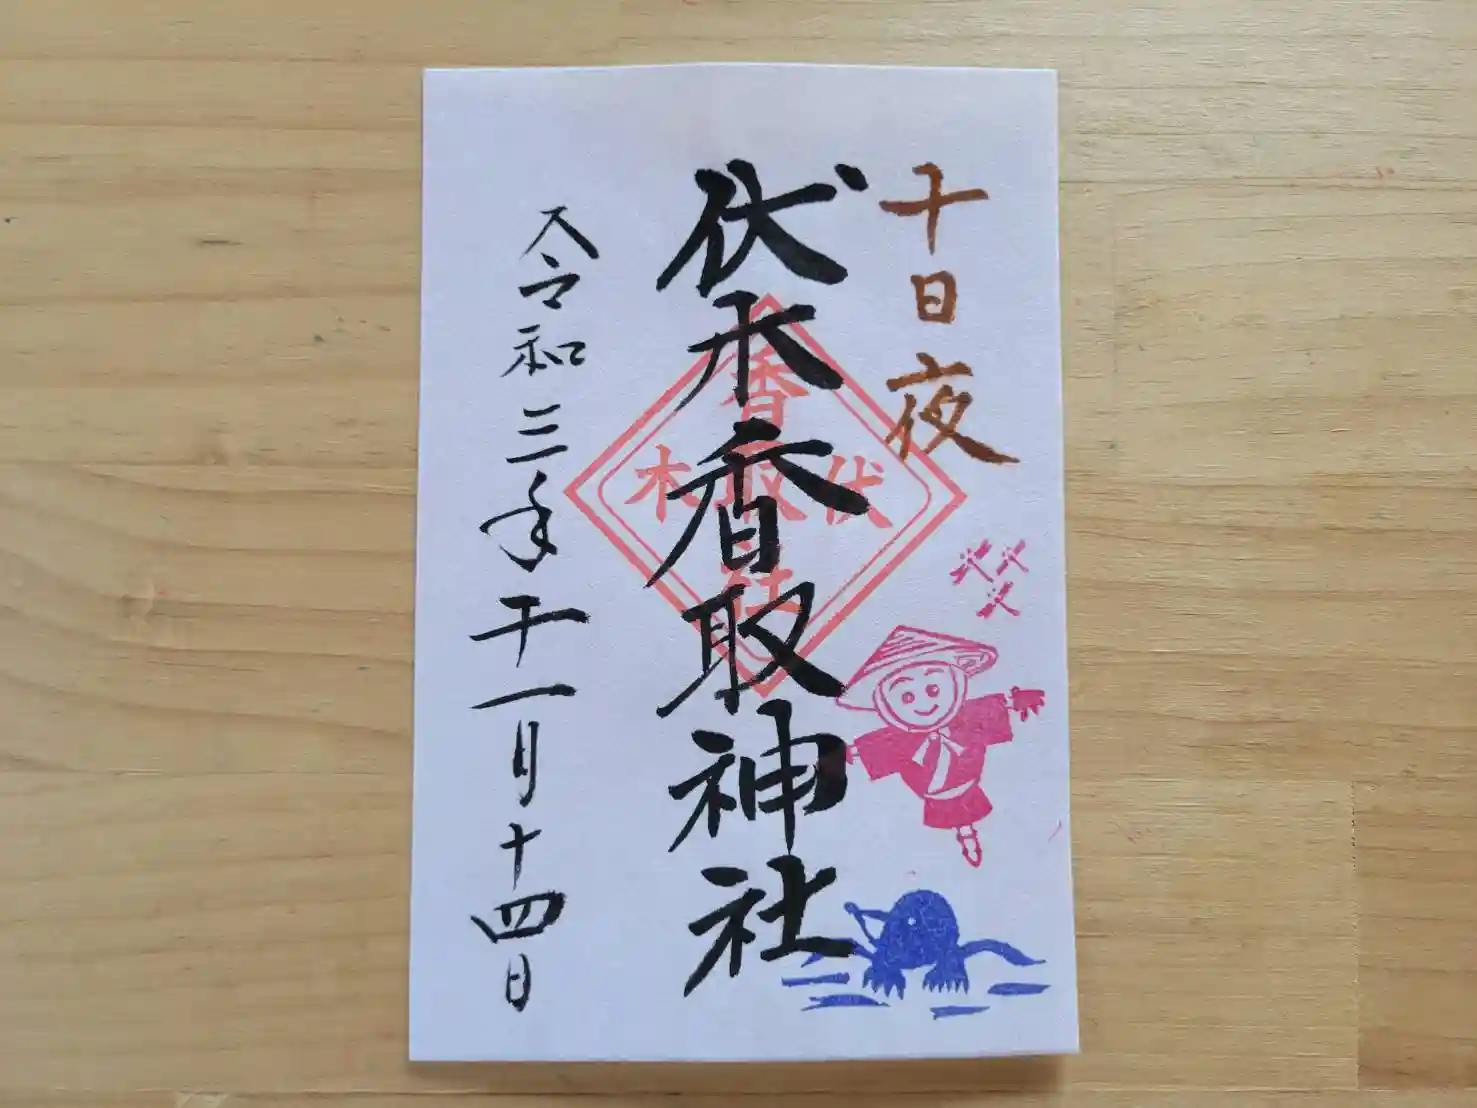 十日夜
伏木香取神社
香取社
伏木
令和三年十一月十四日